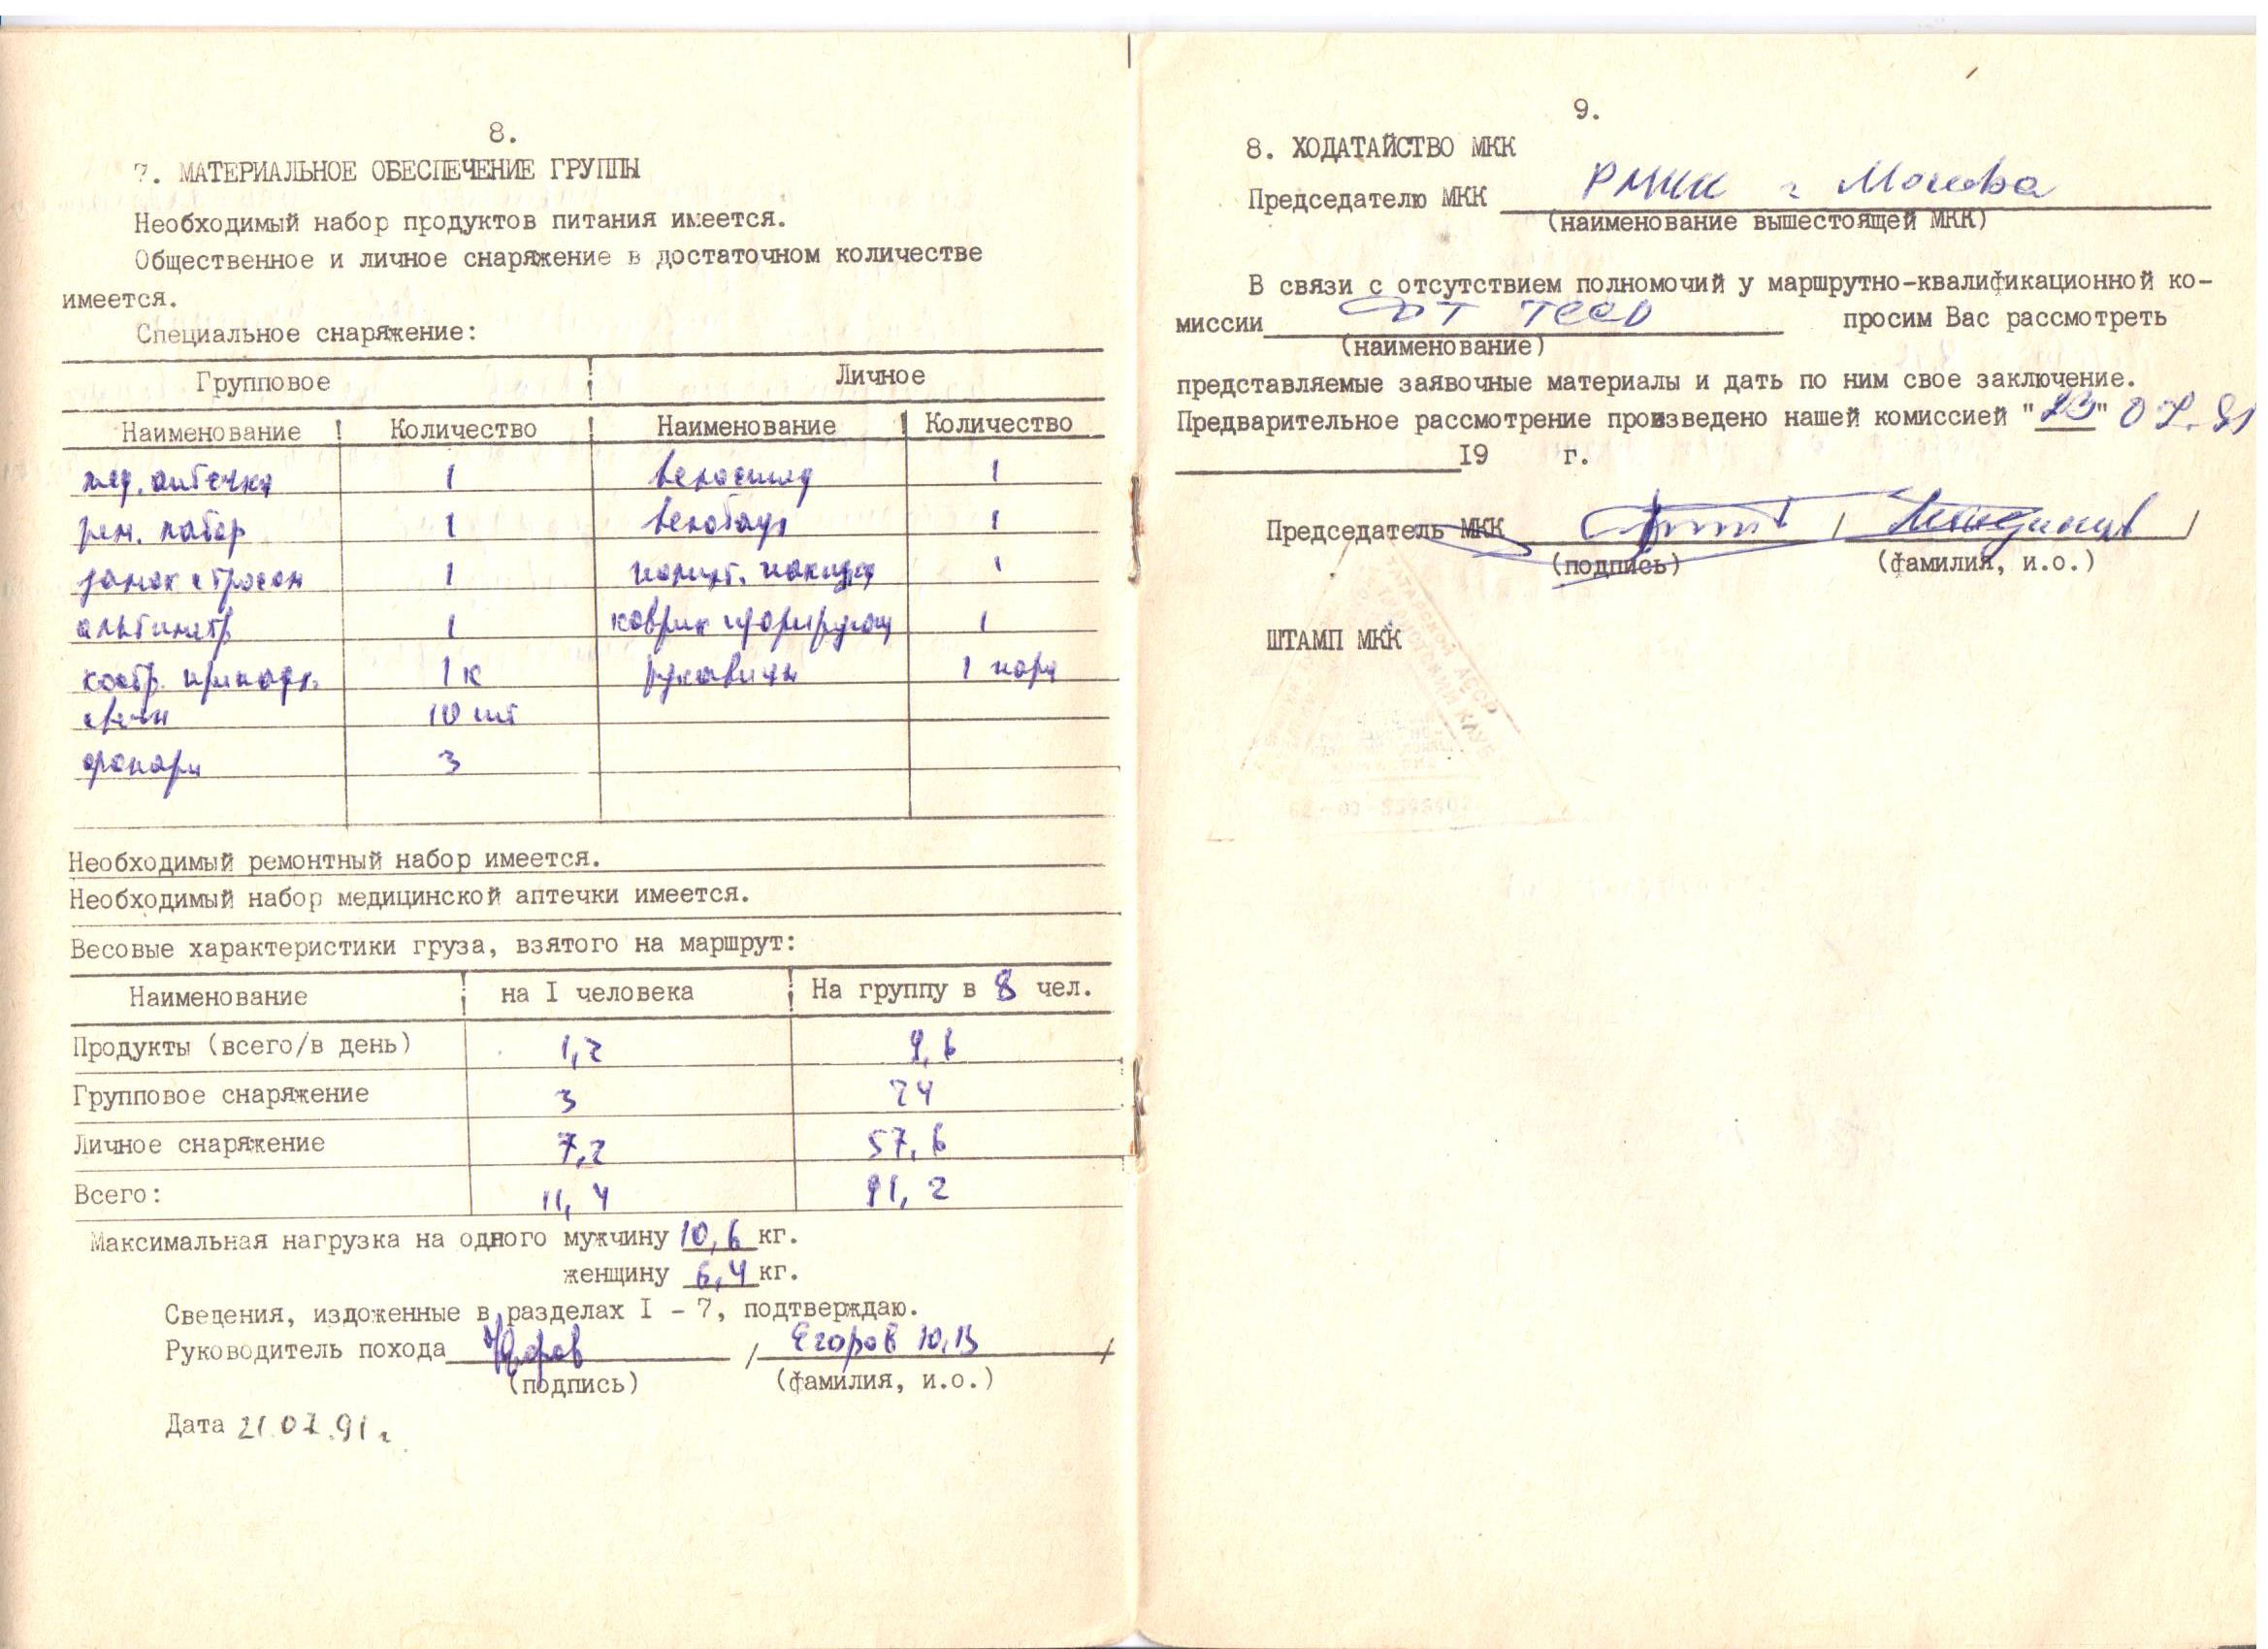 8.
7. МАТЕРИАЛЬНОЕ ОБЕСПЕЧЕНИЕ ГРУППЫ
Необходимый набор продуктов питания имеется.
Общественное и личное снаряжение в достаточном количестве
имеется.
Специальное снаряжение:
Групповое ! Личное
Наименование ! Количество ! Наименование ! Количество
мед. аптечка 1 велосипед 1
рем. набор 1 1
замок с тросом 1 полиэт. накидка 1
альтиметр 1 коврик 1
костр. принадл. 1 к рукавицы 1 пара
свечи 10 шт
фонари 3
Необходимый ремонтный набор имеется.
Необходимый набор медицинской аптечки имеется.
Весовые характеристики груза, взятого на маршрут:
Наименование ! на I человека ! На группу в 8 чел.
Продукты (всего/в день) 1,2 9,6
Групповое снаряжение 3 24
Личное снаряжение 7,2 57,6
Всего: 11,4 91,2
Максимальная нагрузка на одного мужчину 10,6 кг.
женщину 6,4 кг.
Сведения, изложенные в разделах I - 7, подтверждаю.
Руководитель похода Егоров / Егоров Ю,В /
(подпись) (фамилия, и.о.)
Дата 21.07.91 г
9.
8. ХОДАТАЙСТВО МКК
Председателю МКК РМКК г Москва
(наименование вышестоящей МКК)
В связи с отсутствием полномочий у маршрутно-квалификационной ко-
миссии просим Вас рассмотреть
(наименование)
представляемые заявочные материалы и дать по ним свое заключение.
Предварительное рассмотрение произведено нашей комиссией "23" 07.91
I9 г.
Председатель МКК / /
(подпись) (фамилия, и.о.)
ШТАМП МКК
ТАТАРСКОЙ АССР
КЛУБ